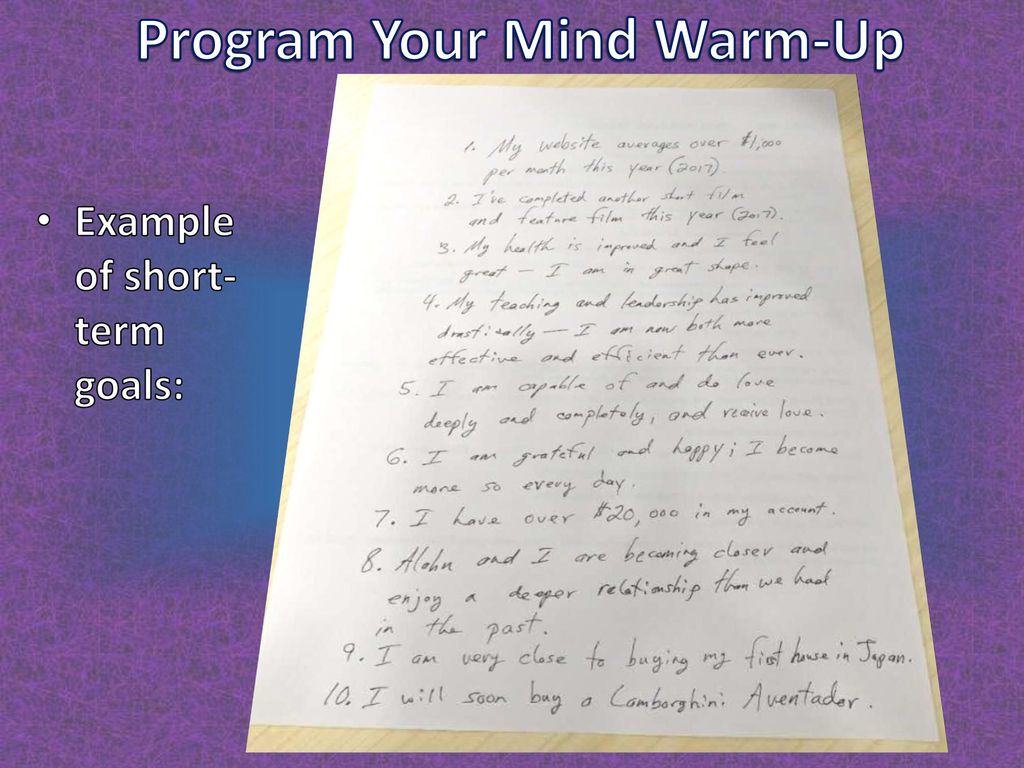 Program Your Mind Warm-Up
• Example
of short-
term
goals:
1. My website averages over $1,000
per month this year (2017).
2. I've completed another short film
and feature film this year (2017).
3. My health is improved and I feel
great — I am in great shape.
4. My teaching and leadership has improved
drastically — I am now both more
effective and efficient than ever.
5. I am capable of and do love
deeply and completely, and receive love.
6. I am grateful and happy; I become
more so every day.
7. I have over $20,000 in my account.
8. and I are becoming closer and
enjoy a deeper relationship than we had
in the past.
9. I am very close to buying my first house in Japan.
10. I will soon buy a Lamborghini Aventador.